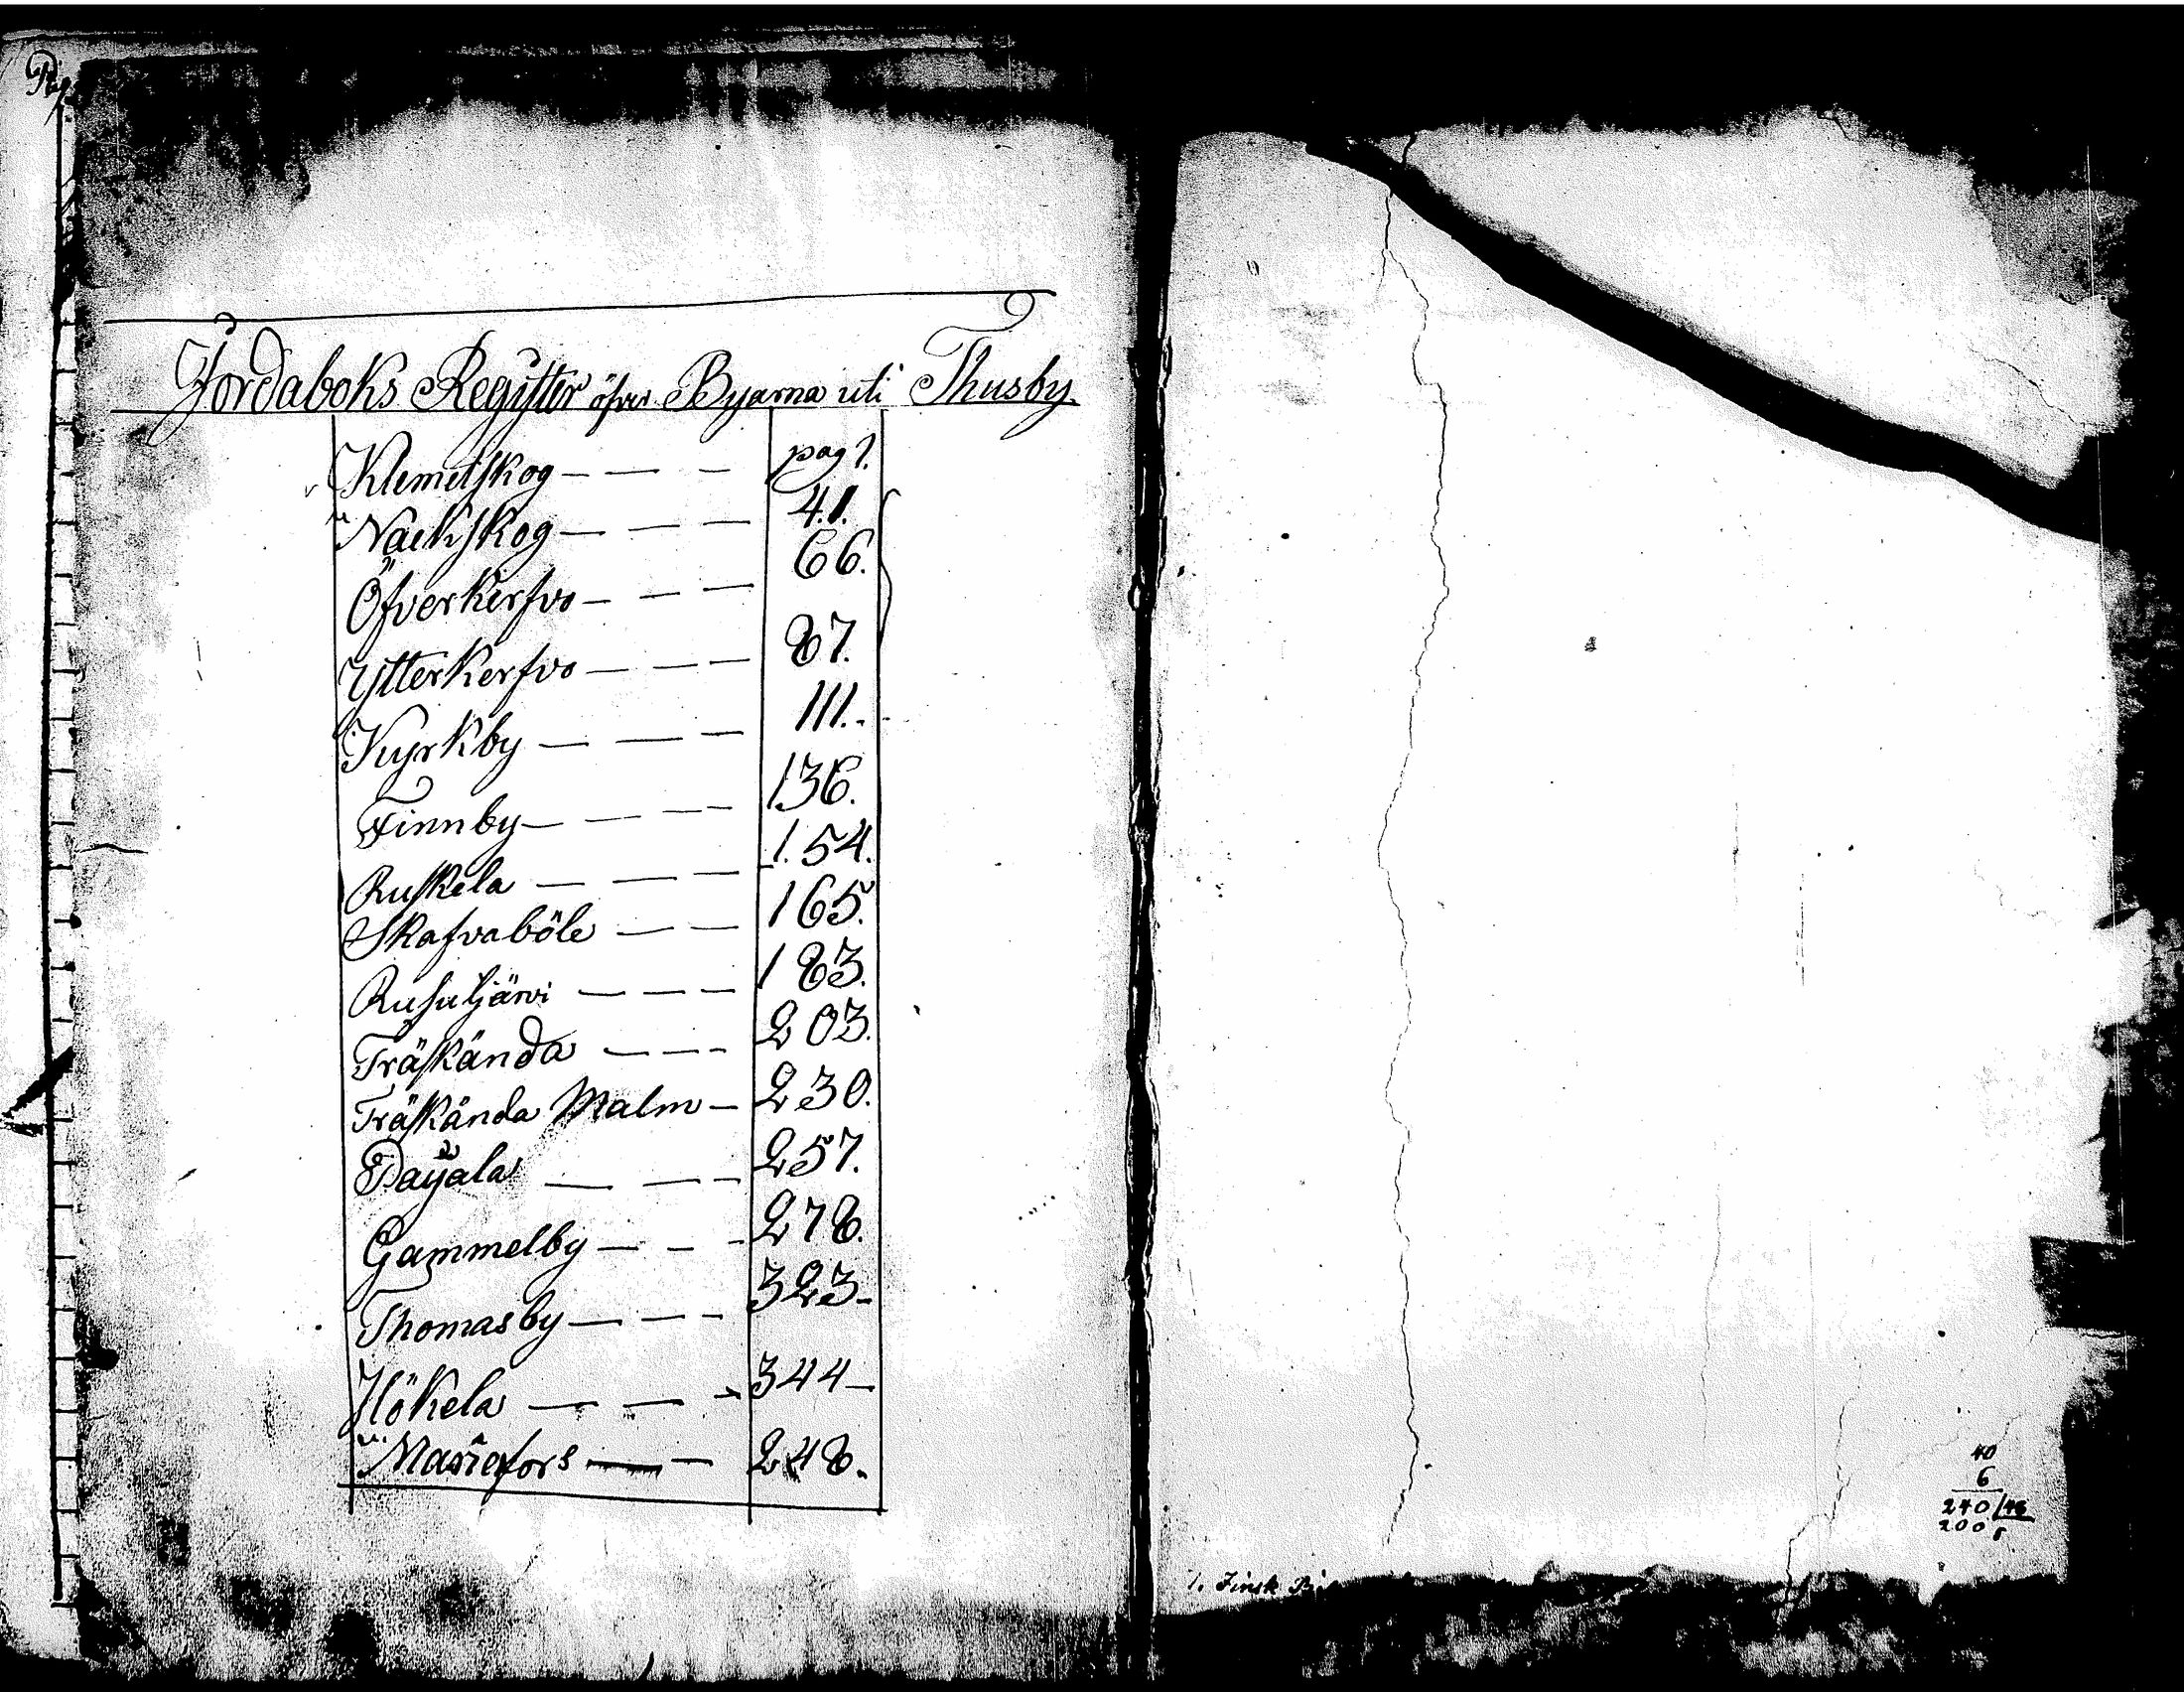 Pag.
Jordaboks Register öfver Byarna uti Thusby.
Klemetskog — — — pag 1.
Nackskog — — — 41.
Öfverkerfvo — — — 66.
Ytterkerfvo — — — 87.
Kyrkby — — — 111.
Finnby — — — 136.
Ruskela — — — 154.
Skafvaböle — — 165.
Rusutjärvi — — — 183.
Träskända — — — 203.
Träskända Malm — 230.
Payala — — — 257.
Gammelby — — — 278.
Thomasby — — — 323.
Hökela — — — 344
Mariefors — — 248.
40
6
240/48
200 5
1. Finsk